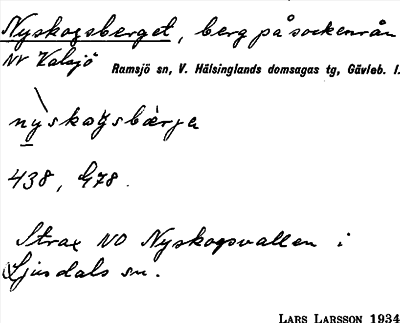 Nyskogsberget, berg på sockenrån
NV Valsjö Ramsjö sn, V. Hälsinglands domsagas tg, Gävleb. l.
nyskogsbærja
438, G78.
Strax NO Nyskogsvallen i
Ljusdals sn.
LARS LARSSON 1934